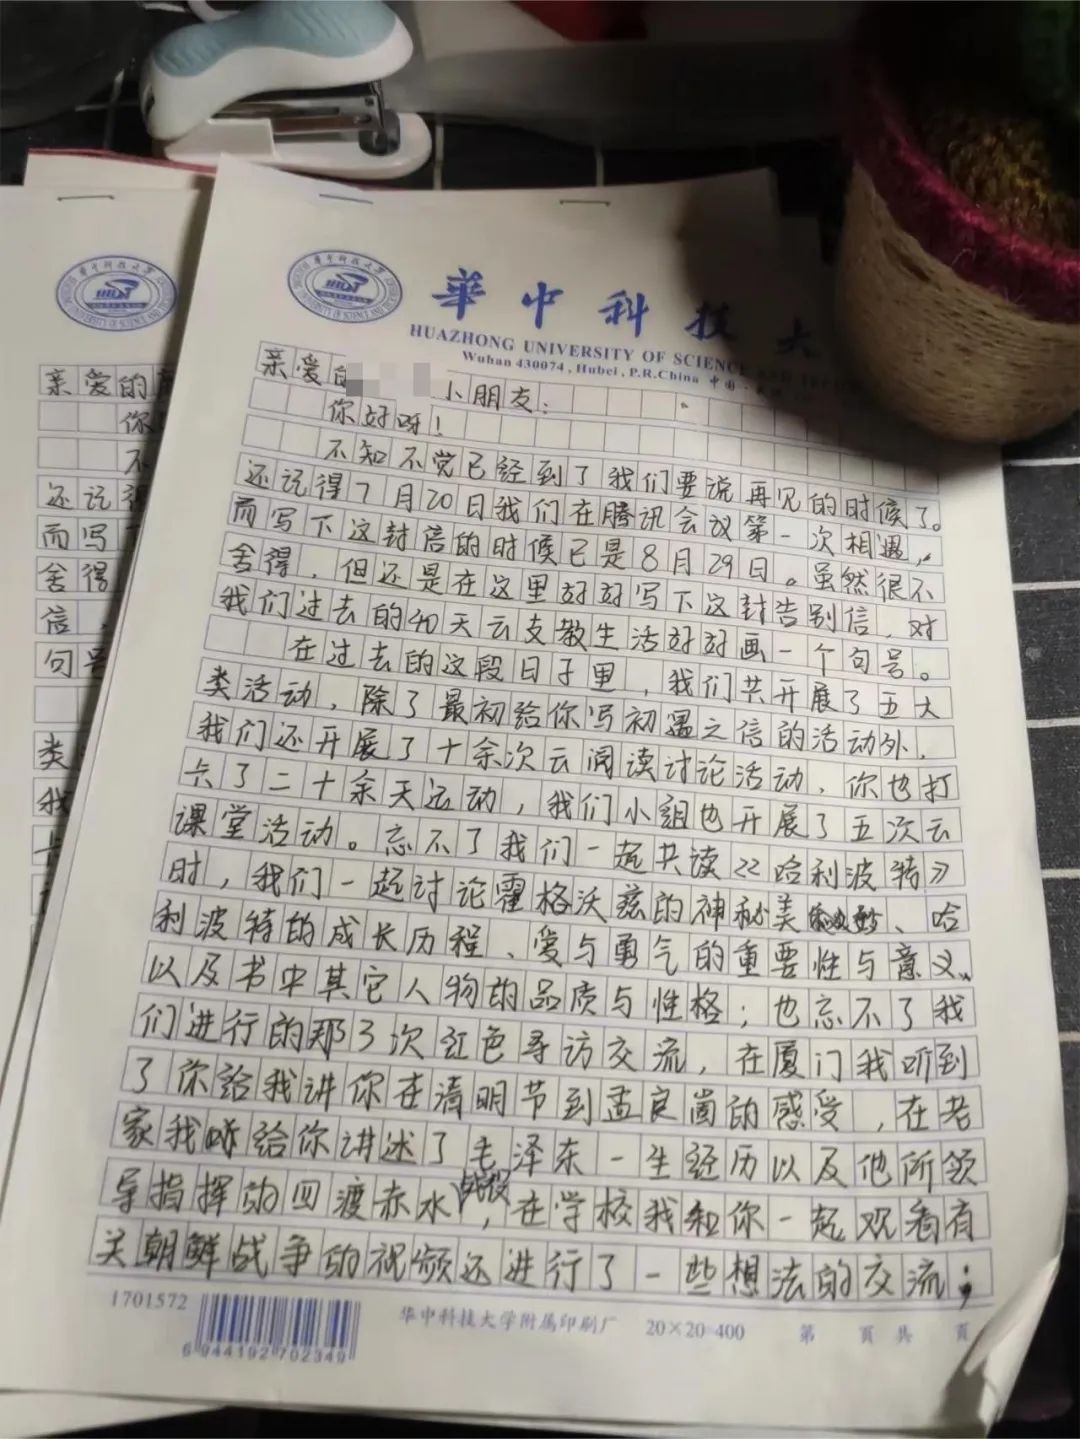 華中科技大
HUAZHONG UNIVERSITY OF SCIENCE AND
Wuhan 430074, Hubei, P.R.China 中国
亲爱的 小朋友：
你好呀！
不知不觉已经到了我们要说再见的时候了。
还记得7月20日我们在腾讯会议第一次相遇，
而写下这封信的时候已是8月29日。虽然很不
舍得，但还是在这里好好写下这封告别信，对
我们过去的40天云支教生活好好画一个句号。
在过去的这段日子里，我们共开展了五大
类活动，除了最初给你写初遇之信的活动外，
我们还开展了十余次云阅读讨论活动，你也打
卡了二十余天运动，我们小组也开展了五次云
课堂活动。忘不了我们一起共读《哈利波特》
时，我们一起讨论霍格沃兹的神秘美妙、哈
利波特的成长历程、爱与勇气的重要性与意义、
以及书中其它人物的品质与性格；也忘不了我
们进行的那3次红色寻访交流，在厦门我听到
了你给我讲你在清明节到孟良崮的感受，在老
家我给你讲述了毛泽东一生经历以及他所领
导指挥的四渡赤水战役，在学校我和你一起观看有
关朝鲜战争的视频还进行了一些想法的交流；
1701572
6 944192 702349
华中科技大学附属印刷厂 20×20=400 第 页 共 页
亲爱的
你
不
还记得
而写
舍得
信，
句号
类
我
卡